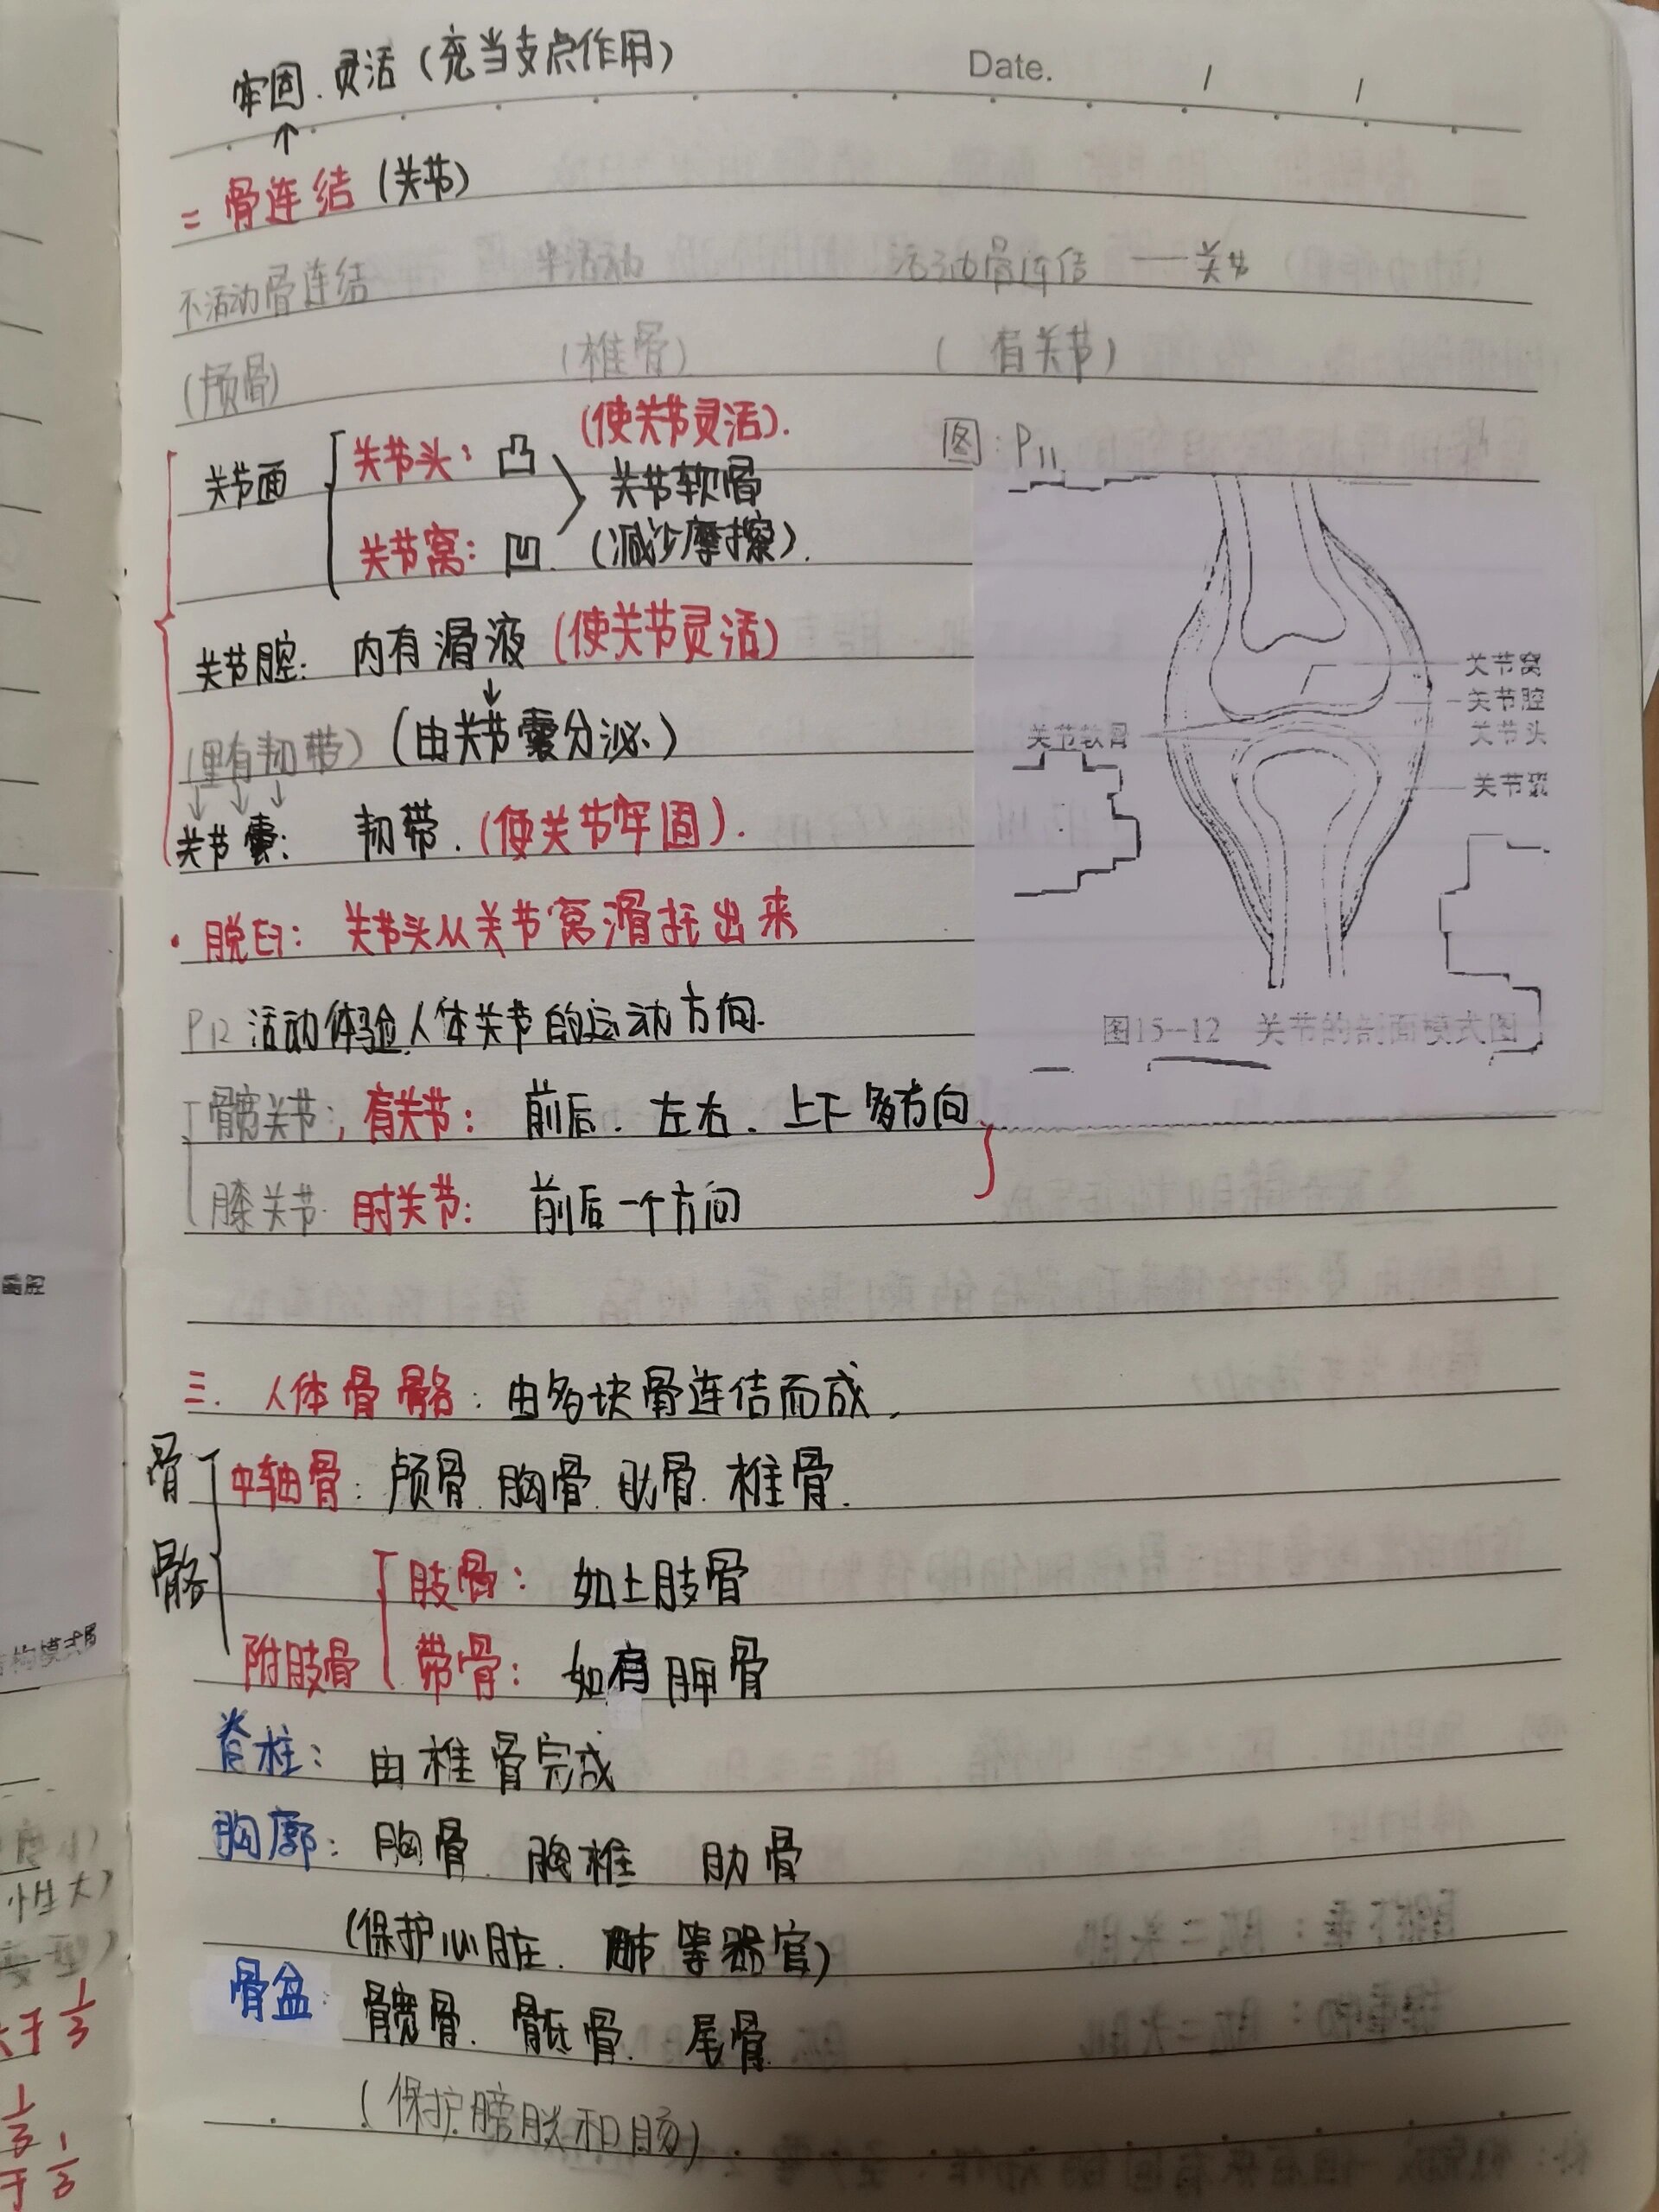 牢固.灵活(充当支点作用)
Date. / /
↑
二 骨连结(关节)
不活动骨连结 半活动 活动骨连结 — 关节
(颅骨) (椎骨) (肩关节)
关节面 关节头: 凸 (使关节灵活).
关节软骨
关节窝: 凹. (减少摩擦).
图:P11
关节腔: 内有滑液(使关节灵活)
↓
(里有韧带)(由关节囊分泌.)
↓ ↓ ↓
关节囊: 韧带.(使关节牢固).
·脱臼: 关节头从关节窝滑托出来
关节窝
关节腔
关节软骨
关节头
关节软
图15-12 关节的剖面模式图
P12 活动体验人体关节的运动方向.
髋关节; 肩关节: 前后. 左右. 上下多方向
膝关节. 肘关节: 前后一个方向
三. 人体骨骼: 由多块骨连结而成.
骨骼
中轴骨: 颅骨. 胸骨. 肋骨. 椎骨.
肢骨: 如上肢骨
附肢骨 带骨: 如肩胛骨
脊柱: 由椎骨完成
胸廓: 胸骨. 胸椎 肋骨
(保护心脏. 肺等器官)
骨盆: 髋骨. 骶骨. 尾骨.
(保护膀胱和肠)
构模式图
性大)
变型)
于 1/3
1/3
于 1/3